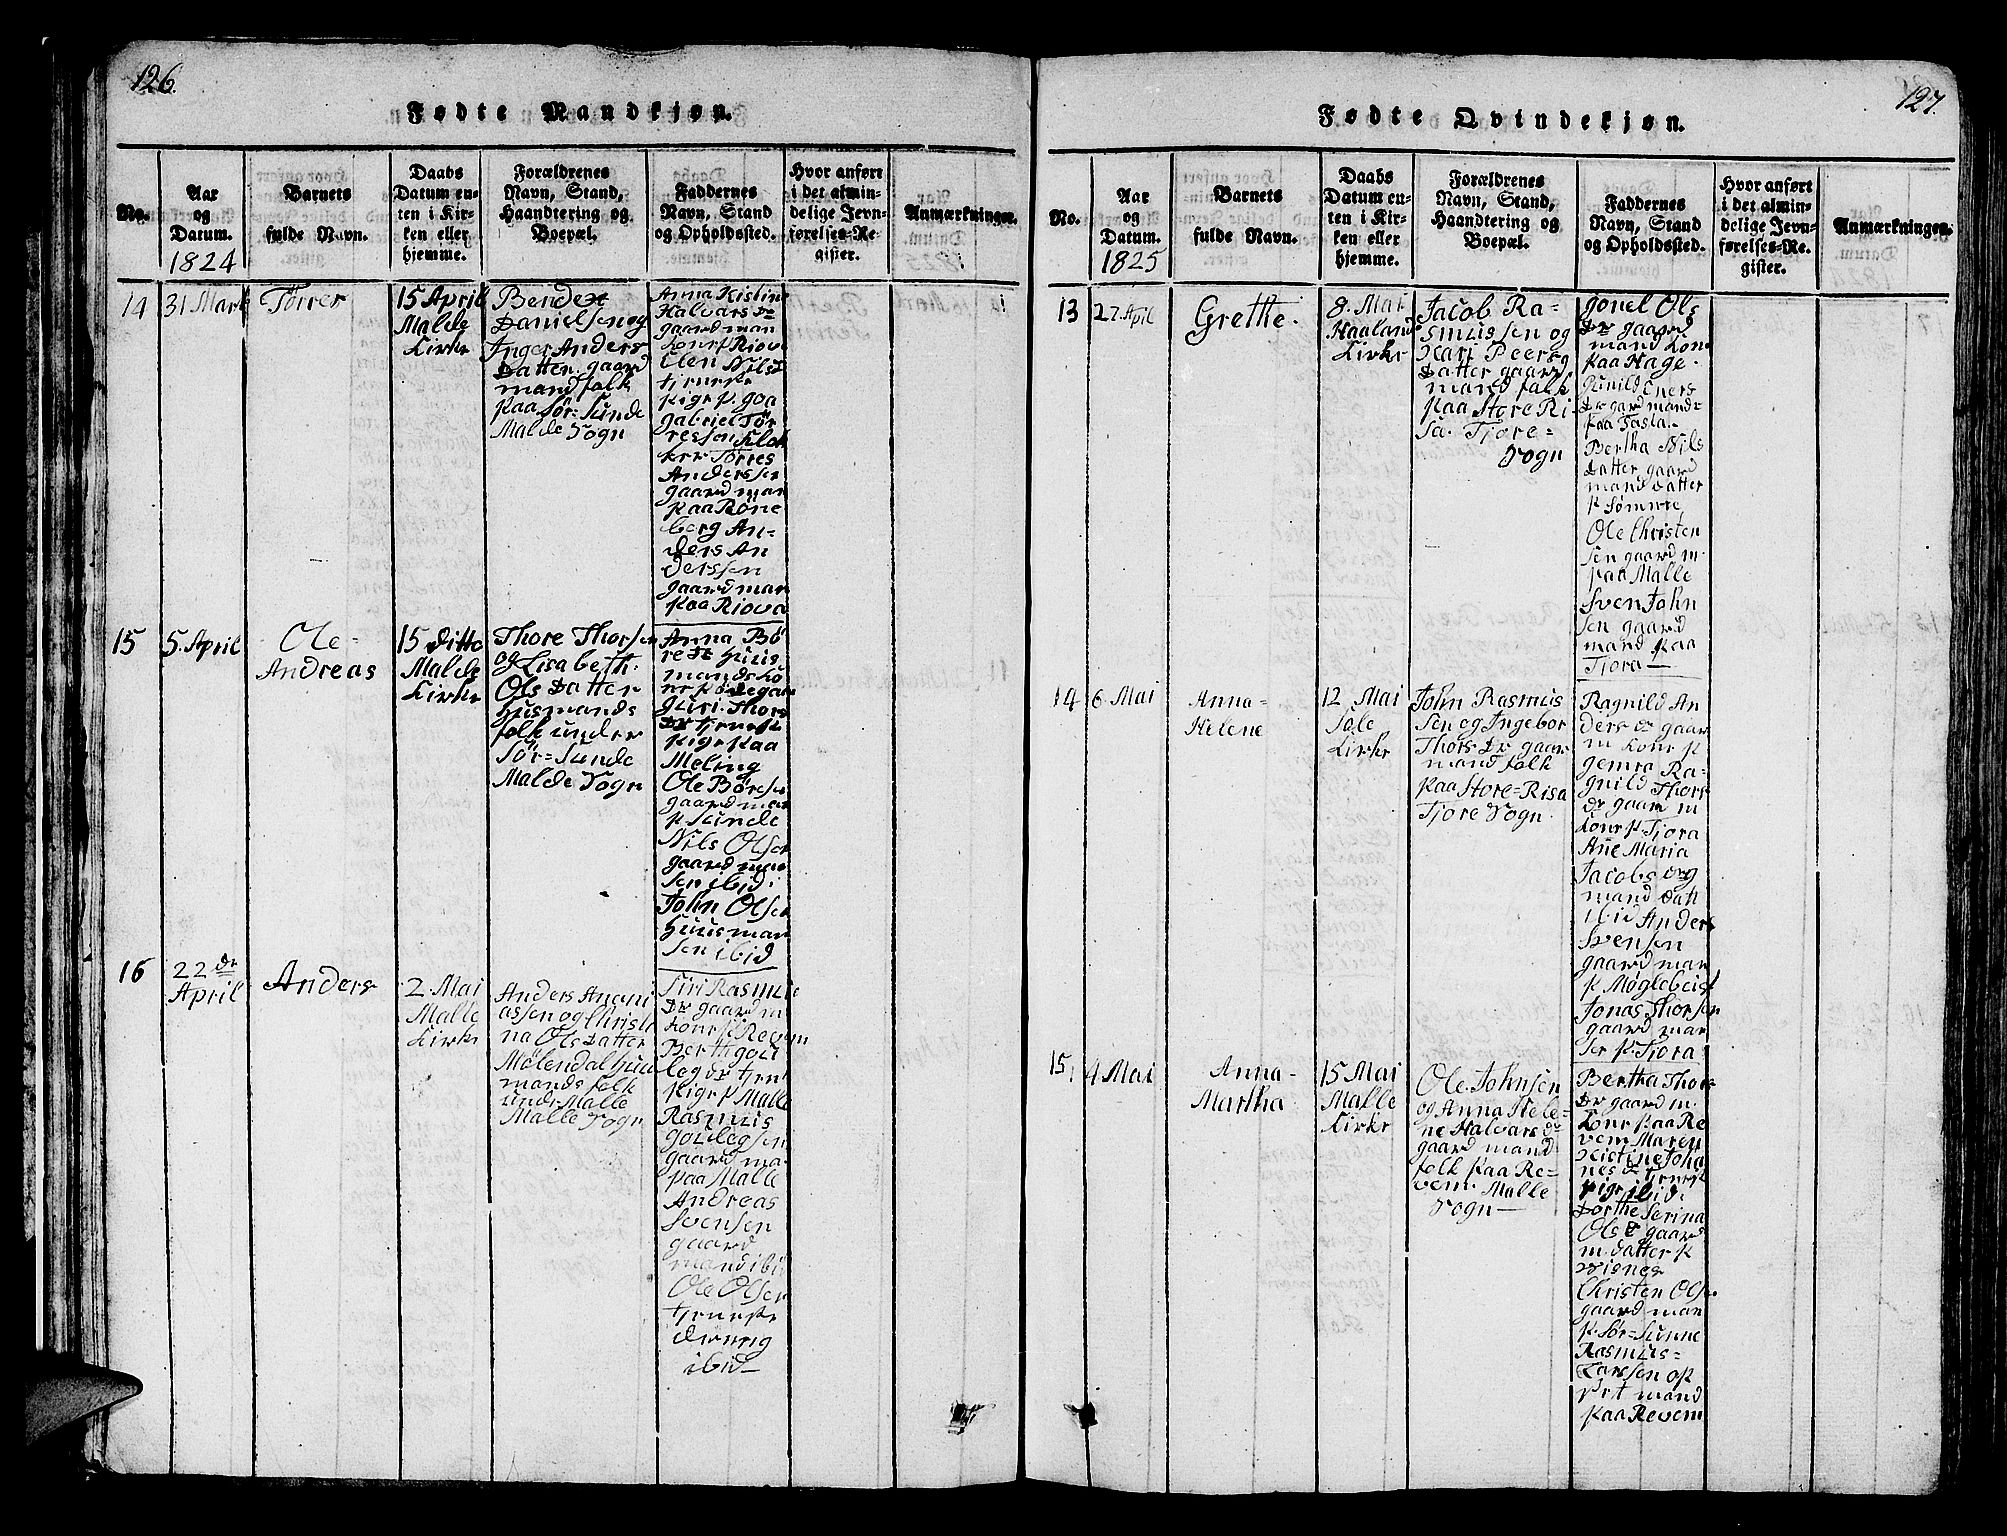 126.
Fødte Mandkjøn.
No.
Aar
og
Datum.
1824
Barnets
fulde Navn.
Daabs
Datum en-
ten i Kir-
ken eller
hjemme.
Forældrenes
Navn, Stand,
Haandtering og
Boepæl.
Faddernes
Navn, Stand
og Opholdssted.
Hvor anført
i det almin-
delige Jevn-
førelses-Re
gister.
Anmærkninger.
14
31 Mart
Tørrer
15 April
Malde
Kirke
Bendex
Danielsen og
Inger Anders
Datter gaard
mandfolk
paa Sör=Sunde
Malde Sogn
Anna Kistine
Halvars Dr
gaardman
konr p Riove
Elen Nilsd
tjeneste
pige p. goa
gabriel Tör
ressen Klok
ker Tørres
Anderssen
gaardman
paa Röne
berg An-
ders An
derssen
gaardman
paa Riova
15
5. April
Ole-
Andreas
15 ditto
Malde
Kirke
Thore Thorsen
og Lisabeth.
Ols Datter
Husmands
folk under
Sör=Sunde
Malde Sogn
Anna Bö
re Dr Huus
mandsko
ne p ødegaar
guri. Thors
Dr tjeneste
pige paa
Meling
Ole Børesen
gaardman
p Sunde
Nils Olsen
gaardman
sen ibid:
John Olsen
Huusman
sen ibid
16
22 de
April
Anders
2. Mai
Malle
Kirke
Anders Anani
assen og Christi
na Ols Datter
Mølendal Huu
mands folk
unde Malle
Malle Sogn
Siri Rasmus
Dr gaard m
konr p Revem
Berth gou
leg dr tjen
pige p Malle
Rasmus
goulegsen
gaard ma
paa Malle
Andreas
Svensen
gaard
mand ibid
Ole Olsen
tjeneste
dreng
ibid
127.
Fødte Qvindekjøn.
No.
Aar
og
Datum.
1825
Barnets
fulde Navn.
Daabs
Datum en-
ten i Kir-
ken eller
hjemme.
Forældrenes
Navn, Stand,
Haandtering og
Boepæl.
Faddernes
Navn, Stand
og Opholdssted.
Hvor anført
i det almin-
delige Jevn-
førelses-Re-
gister.
Anmærkninger.
13
27 April
Grethe.
8. Mai
Haaland
Kirke
Jacob Ra-
smussen og
Kari Peers
Datter gaard
mand folk
paa Store Ri
sa. Tjore=
Sogn
gonel Ols
Dr gaard
mand kon
paa Hage.
gunild Eners
Dr gard mand=
paa Tasta.
Bertha Nils
Datter gaard
mand datter
p Sømme
Ole Christen
sen gaard m.
paa Malle
Sven John
sen gaard
mand paa
Tjora
14
6 Mai
Anna-
Helene
12 Mai
Sole
Kirke
John Rasmus
sen og Ingebor
Thors Dr gaar
mand folk
paa Store=Risa
Tjore Sogn.
Ragnild An
ders dr gaar
m konr p
gemra Ra-
gnild Thors
dr gaard m
konr p Tjora
Ane Maria
Jacobs dr g
mand Datt
ibid Anders
Svensen
gaard man
p Møglebeist
Jonas Thorsen
gaard man
ser p. Tjora
15.
4 Mai
Anna-
Martha
15 Mai
Malle
Kirke
Ole Johnsen
og Anna Hele-
ne Halvars dr
gaard mand
folk paa Re-
vem: Malle
Sogn
Bertha Thor=
Dr gaard m.
konr paa Re
vem Maren
Kistine Joha
nes dr tjenest
pige ibid:
Dorthe Serina
Ols dr gaard
m. datter p
Visnes
Christen Olse
gaard man
p. Sör=Sunne
Rasmus=
Larssen op
sit mand
paa Revem